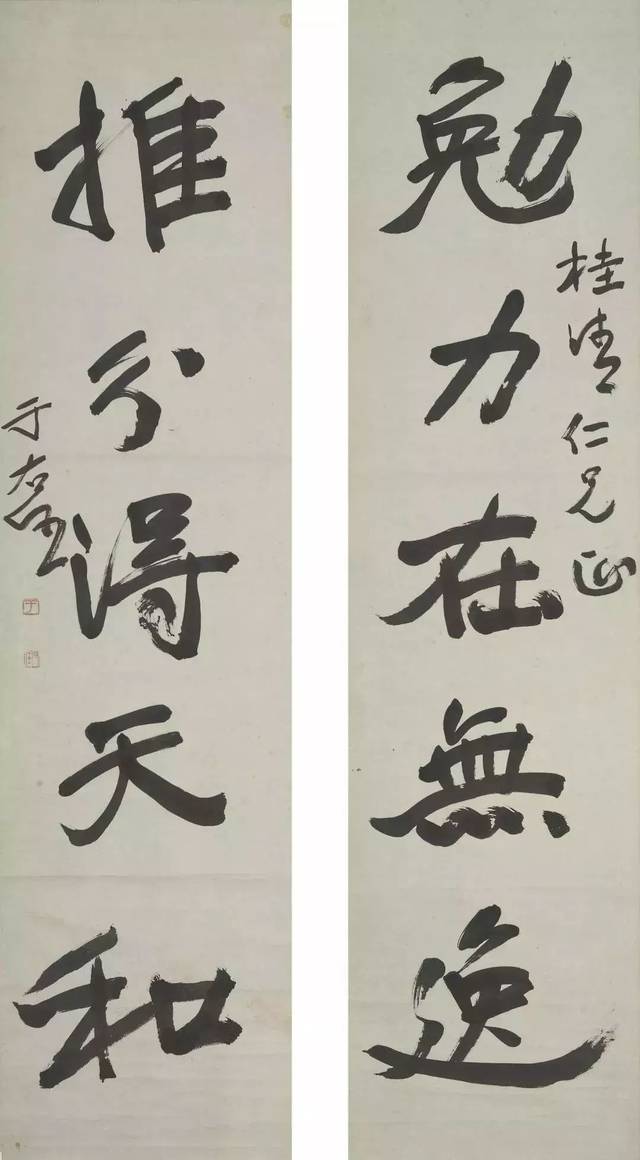 勉力在無逸
桂清仁兄正
推分得天和
于右任